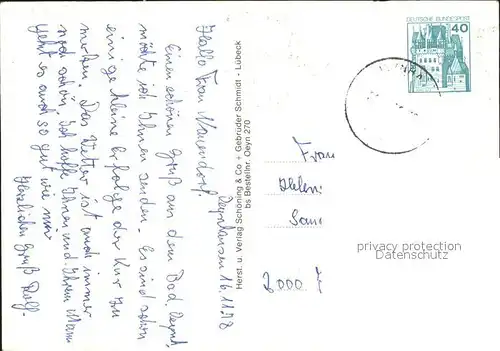 Oeynhausen 16.11.78
Hallo Frau
Einen schönen Gruß aus dem Bad Oeynh.
möchte ich Ihnen senden. Es sind schon
einige kleine Erfolge der Kur zu
merken. Das Wetter ist auch immer
noch schön. Ich hoffe Ihnen und Ihrem Mann
geht es auch so gut wie mir
Herzlichen Gruß Rolf.
Herst. u. Verlag Schöning & Co + Gebrüder Schmidt - Lübeck
bs Bestellnr. Oeyn 270
DEUTSCHE BUNDESPOST
40
Frau
Helen
privacy protection
Datenschutz
2000